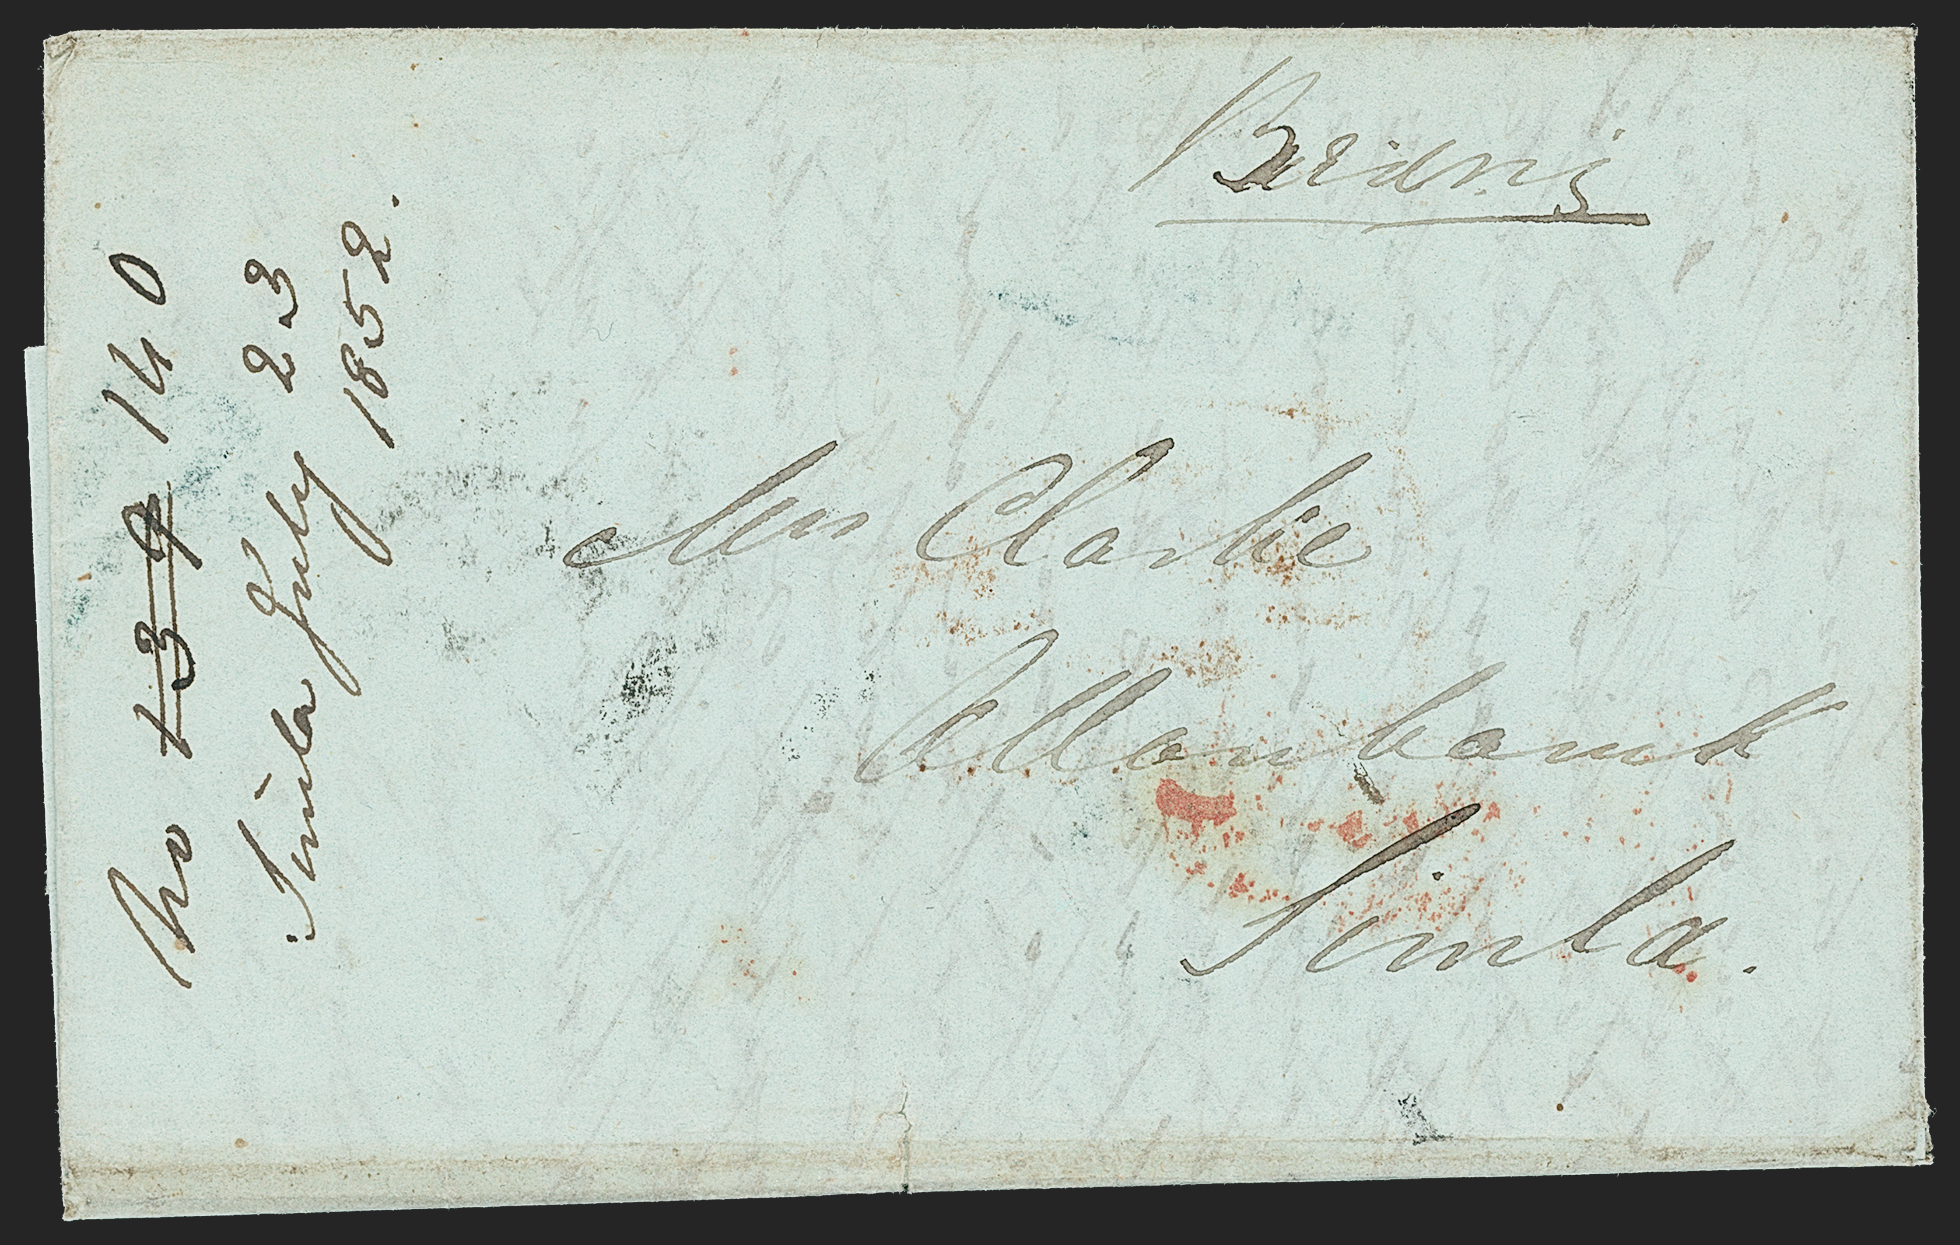 Bearing
Mrs Clarke
Allan bank
Simla.
No 139 140
Simla July 23
1852.